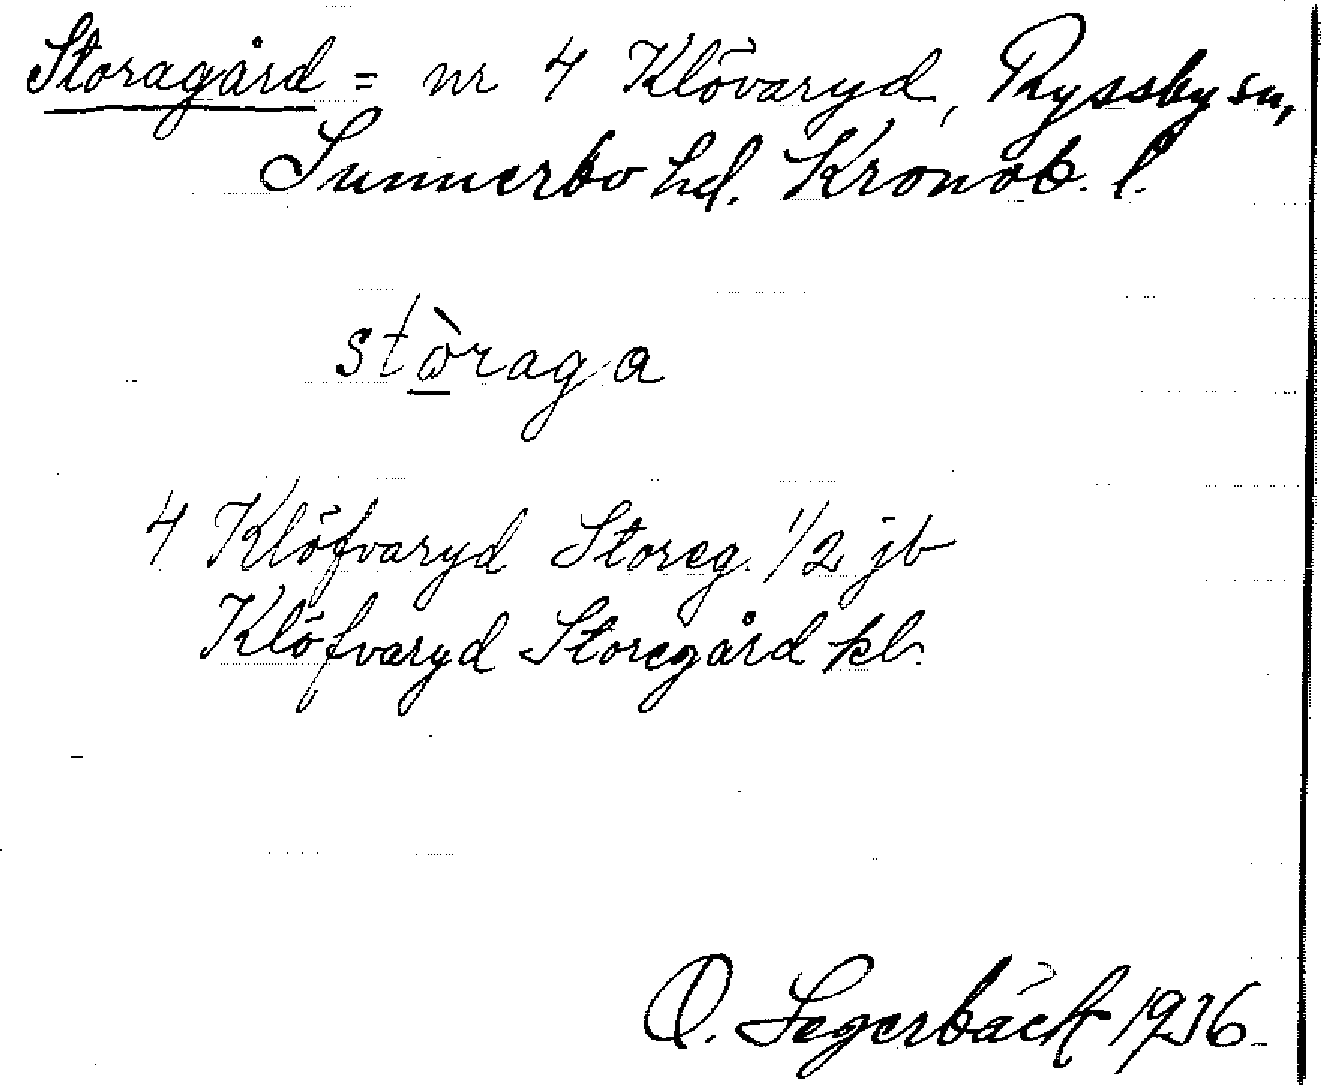 Storagård = nr 4 Klövaryd, Ryssby sn,
Sunnerbo hd. Kronob. l.
stòraga
4 Klöfvaryd Storeg. 1/2 jb
Klöfvaryd Storegård pl.
O. Segerbäck 1936